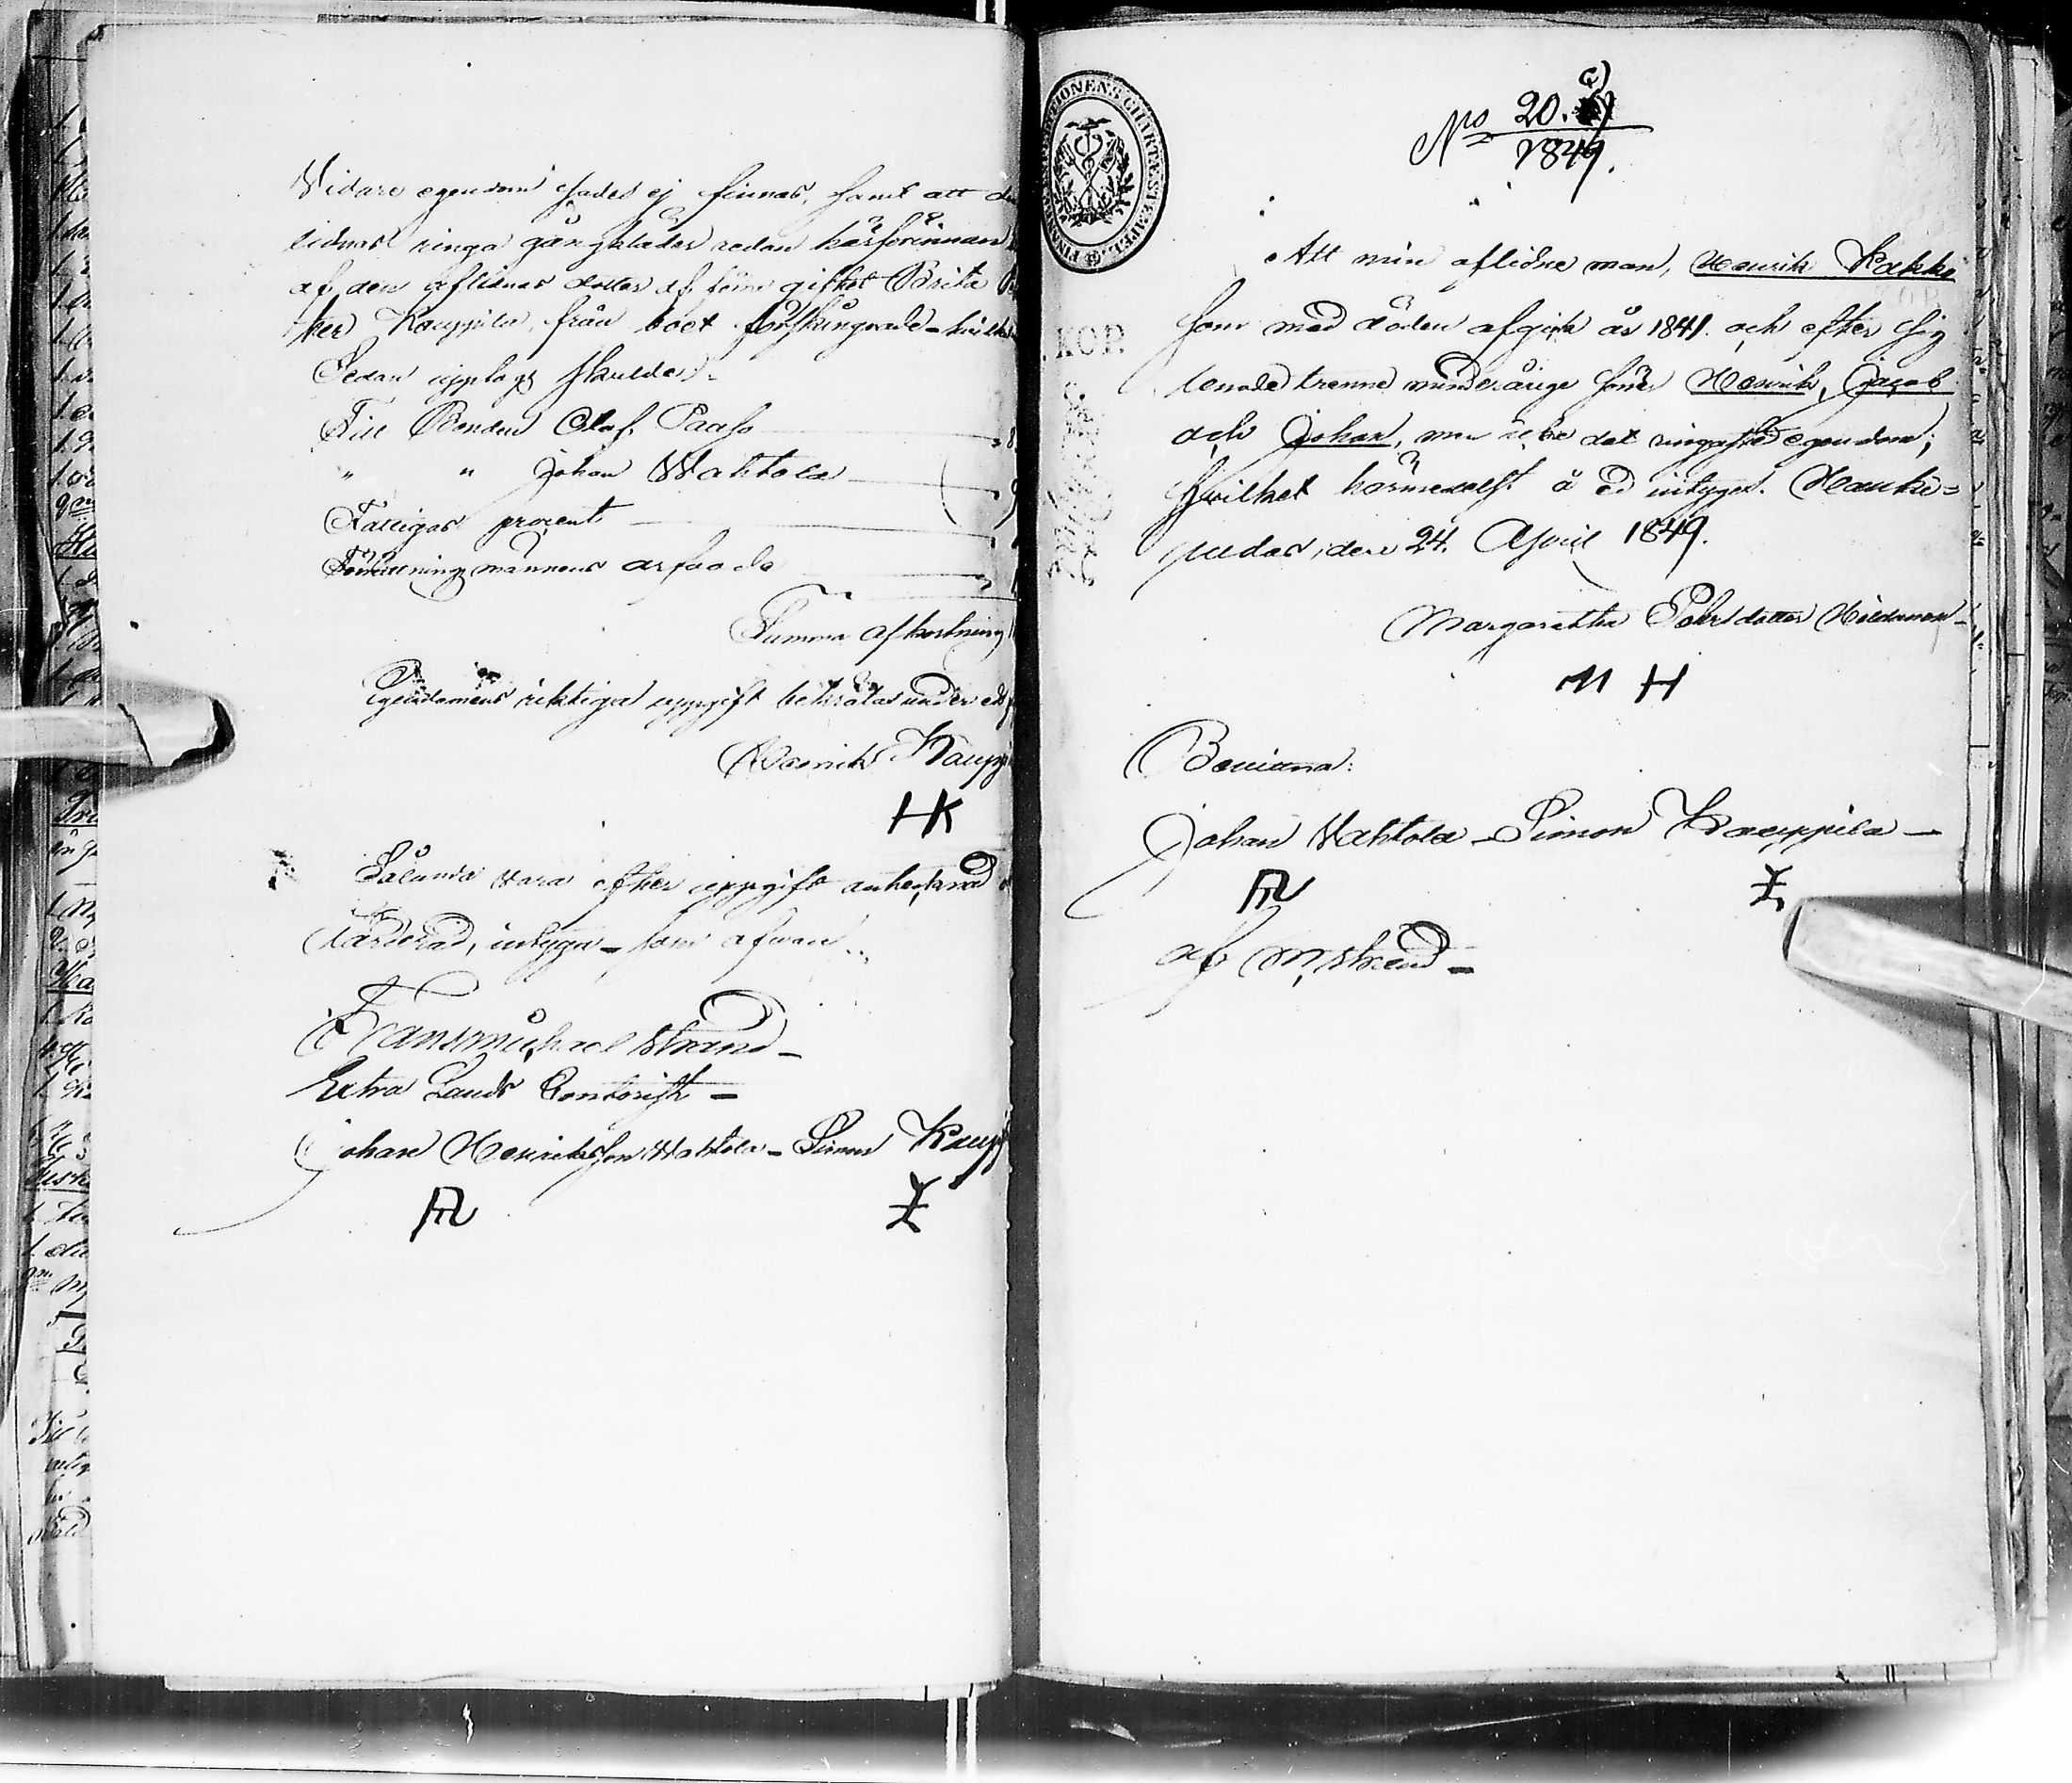 Vidare egendom sades ej finnas, samt att
lidnas ringa gångkläder redan härförinnan
af den aflidnas dotter af förra giftet Brita
Kauppila, från boet förskingrade
Sedan upptogs skulder:
Till Bonden Olof Paaso
" " Johan Wahtola
Fattigas procent
Förrättningsmännens arfvode
Summa afkortning
Egendomens riktiga uppgift bekräftas under
Henrik Kaupp
HK
Sålunda vara efter uppgift antecknad
värderad, intyga som ofvan
Frans Michael Strand
Extra Lands Contorist
Johan Henriksson Wahtola Simon Kaupp
FINANCE EXPEDITIONENS CHARTÆ STEMPEL
KOP.
Nro 20. c)
1849.
Att min aflidne man, Henrik Kakko
som med döden afgick år 1841. och efter sig
lemnade trenne minderårige söner Henrik, Jacob
och Johan, men icke det ringaste egendom;
hvilket härmedelst å ed intygas. Hauki=
pudas, den 24. April 1849.
Margaretha Pehrsdotter
M H
Bevittna:
Johan Wahtola Simon Kauppila
af M. Strand